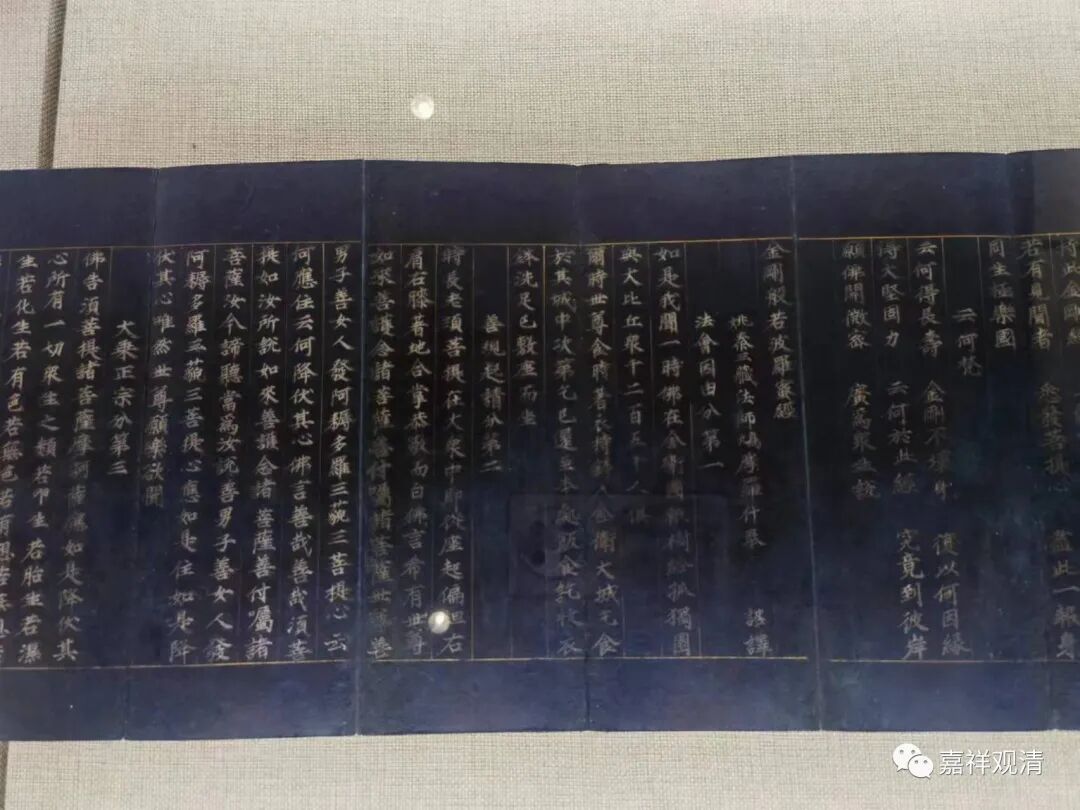 持此金剛經
若有見聞者 悉發菩提心 盡此一報身
同生極樂國
云何梵
云何得長壽 金剛不壞身 復以何因緣
得大堅固力 云何於此經 究竟到彼岸
願佛開微密 廣爲衆生說
金剛般若波羅蜜經
姚秦三藏法師鳩摩羅什奉 詔譯
法會因由分第一
如是我聞一時佛在舍衛國祇樹給孤獨園
與大比丘衆千二百五十人俱
爾時世尊食時著衣持鉢入舍衛大城乞食
於其城中次第乞已還至本處飯食訖收衣
鉢洗足已敷座而坐
善現起請分第二
時長老須菩提在大衆中即從座起偏袒右
肩右膝著地合掌恭敬而白佛言希有世尊
如來善護念諸菩薩善付囑諸菩薩世尊善
男子善女人發阿耨多羅三藐三菩提心云
何應住云何降伏其心佛言善哉善哉須菩
提如汝所說如來善護念諸菩薩善付屬諸
菩薩汝今諦聽當爲汝說善男子善女人發
阿耨多羅三藐三菩提心應如是住如是降
伏其心唯然世尊願樂欲聞
大乘正宗分第三
佛告須菩提諸菩薩摩訶薩應如是降伏其
心所有一切衆生之類若卵生若胎生若濕
生若化生若有色若無色若有想若無想
嘉祥观清